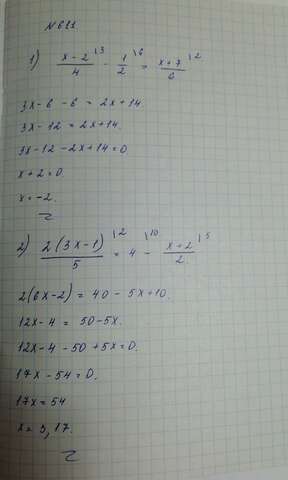 № 681
1) (x-2)/4 \3 - 1/2 \6 = (x+7)/6 \2
3x-6-6 = 2x+14.
3x-12 = 2x+14.
3x-12-2x+14=0
x+2=0
x=-2.
2) 2(3x-1)/5 \2 = 4 \10 - (x+2)/2 \5
2(6x-2) = 40 - 5x+10.
12x-4 = 50-5x.
12x-4-50+5x=0.
17x-54=0.
17x=54
x=3,17.